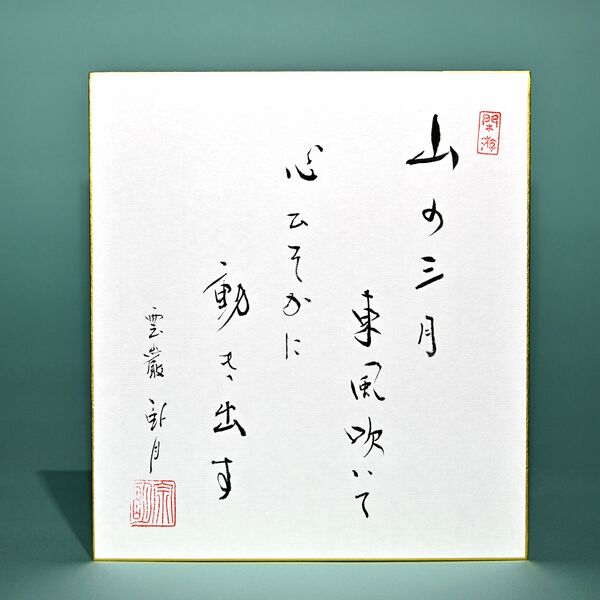 山の三月
東風吹いて
心ひそかに
動き出す
雲巌 卧月